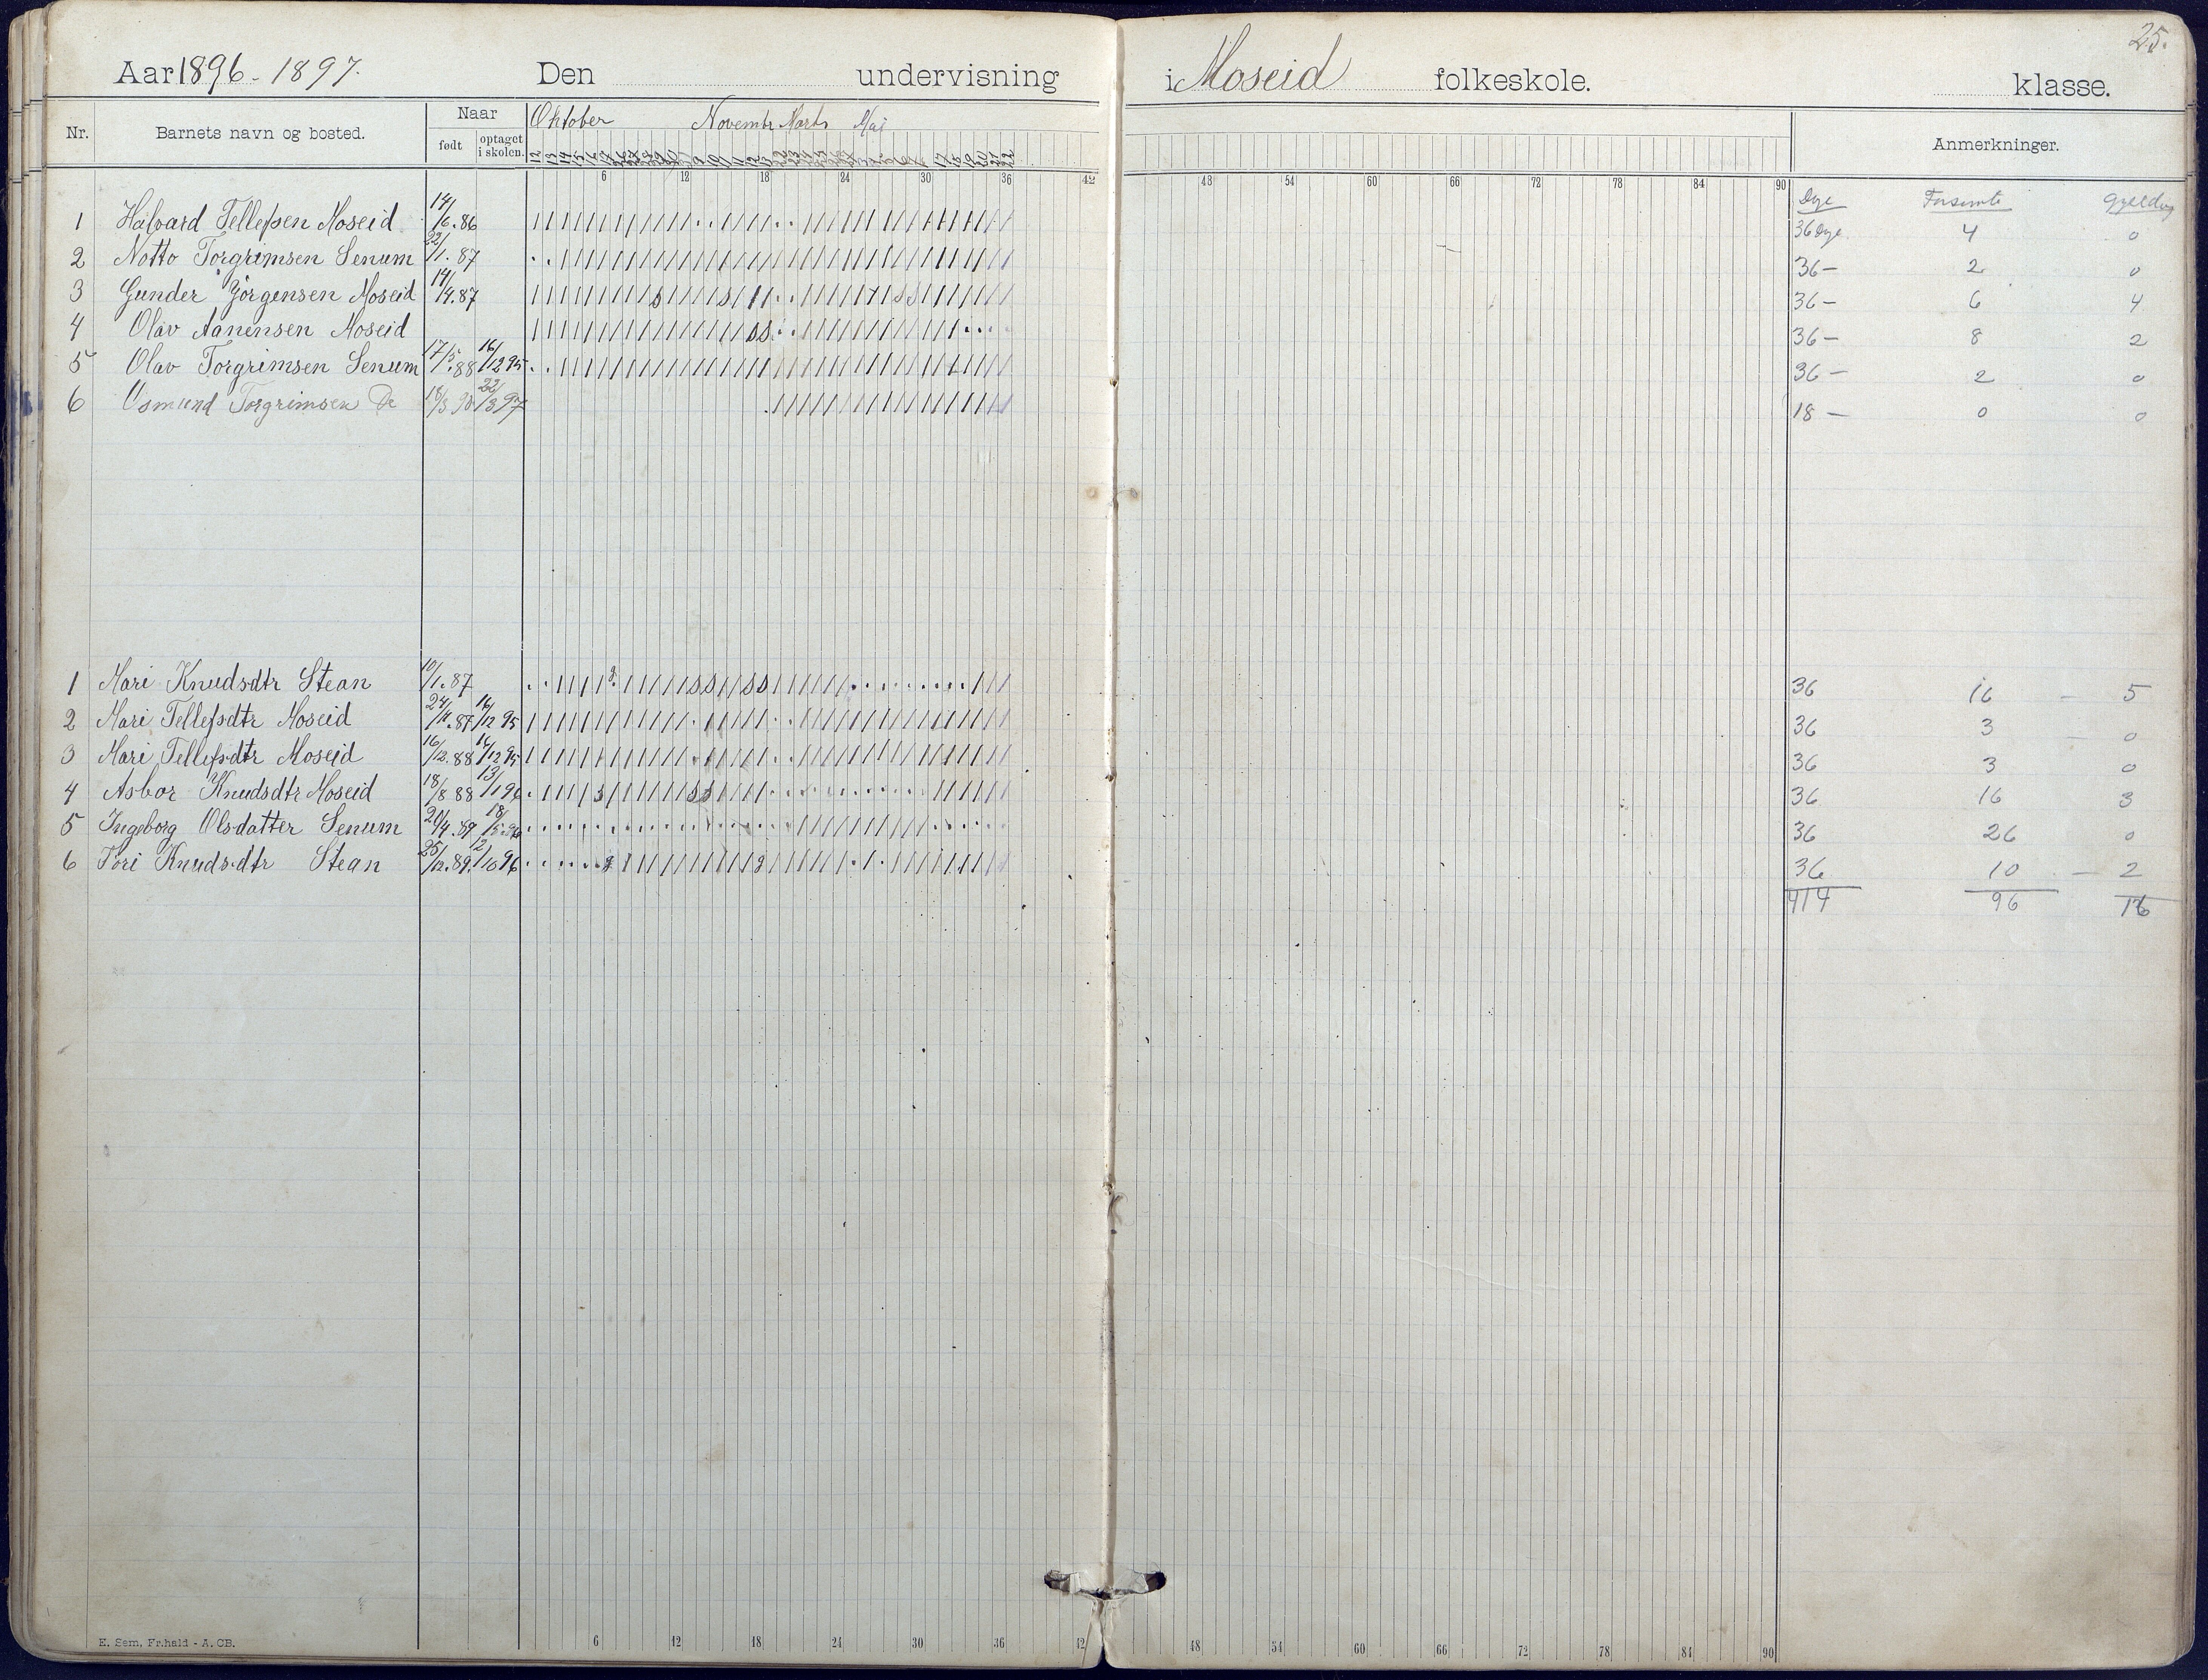 25.
Aar 1896-1897. Den undervisning i Moseid folkeskole. klasse.
Nr. Barnets navn og bosted. Naar født optaget i skolen. Oktober Novembr Marts Mai Anmerkninger.
12 13 14 15 16 17 9 10 11 12 13 22 23 24 25 17 18 19 20 21 22
6 12 18 24 30 36 42 48 54 60 66 72 78 84 90
Dge Forsømte
1 Halvard Tellefsen Moseid 14/6.86 36 Dge 4 0
2 Notto Torgrimsen Senum 22/1.87 36- 2 0
3 Gunder Jørgensen Moseid 14/4.87 36- 6 4
4 Olav Aanensen Moseid 36- 8 2
5 Olav Torgrimsen Senum 17/5.88 16/12 95 36- 2 0
6 Osmund Torgrimsen Do 18/3 90 22/3 97 18- 0 0
1 Mari Knudsdtr Stean 10/1.87 36 16 - 5
2 Mari Tellefsdtr Moseid 24/4.87 16/12 95 36 3 - 0
3 Mari Tellefsdtr Moseid 16/12.88 16/12 95 36 3 0
4 Asbor Knudsdtr Moseid 18/8 88 13/1 96 36 16 3
5 Ingeborg Olsdatter Senum 20/4.89 18/5 96 36 26 0
6 Tori Knudsdtr Stean 25/12.89. 12/10 96 36 10 - 2
414 96 16
E. Sem, Fr.hald - A. CB.
6 12 18 24 30 36 42 48 54 60 66 72 78 84 90